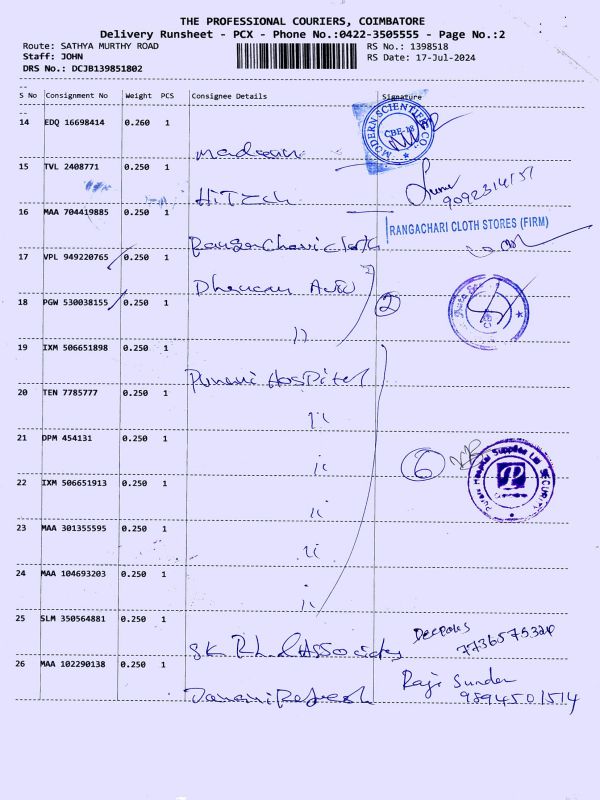 THE PROFESSIONAL COURIERS, COIMBATORE
Delivery Runsheet - PCX - Phone No.:0422-3505555 - Page No.:2
Route: SATHYA MURTHY ROAD
Staff: JOHN
DRS No.: DCJB139851802
RS No.: 1398518
RS Date: 17-Jul-2024
S No Consignment No Weight PCS Consignee Details Signature
14 EDQ 16698414 0.260 1
MODERN SCIENTIFIC CO. CBE-18
15 TVL 2408771 0.250 1 HiTech
9092314151
16 MAA 704419885 0.250 1 Rangachari cloth
RANGACHARI CLOTH STORES (FIRM)
17 VPL 949220765 0.250 1 Auto
18 PGW 530038155 0.250 1 11
2
19 IXM 506651898 0.250 1 Hospital
20 TEN 7785777 0.250 1 11
21 DPM 454131 0.250 1 11
6
Hospital Supplies Ltd SECURITY
22 IXM 506651913 0.250 1 11
23 MAA 301355595 0.250 1 11
24 MAA 104693203 0.250 1 11
25 SLM 350564881 0.250 1 Associates
7736575320
26 MAA 102290138 0.250 1
Raji Sunder
9894501514